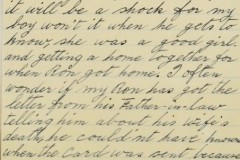 it will be a shock for my
boy won't it when he gets to
know, she was a good girl.
and getting a home together for
when Ron got home. I often
wonder if my Ron has got the
letter from his Father-in-law
telling him about his wife's
death, he could'nt have known
when the Card was sent because